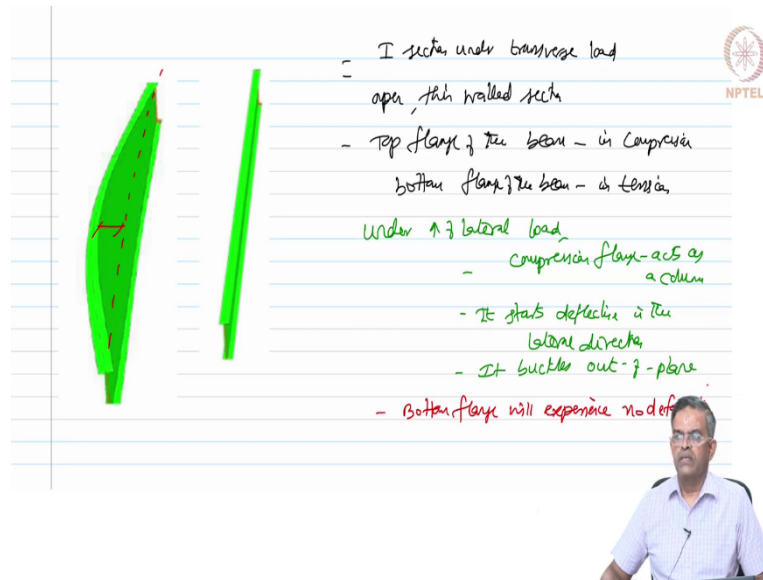 I section under transverse load
NPTEL
open, thin walled section
- Top flange of the beam - in compression
bottom flange of the beam - in tension
under ↑ of lateral load,
- compression flange - acts as
a column
- It starts deflecting in the
lateral direction
- It buckles out-of-plane
- Bottom flange will experience no